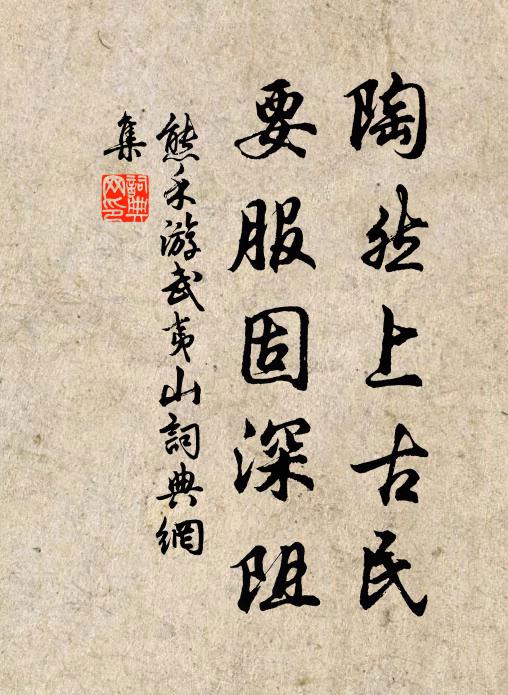 陶然上古民
要服固深阻
熊禾游武夷山詞典網
集
詞典
网印